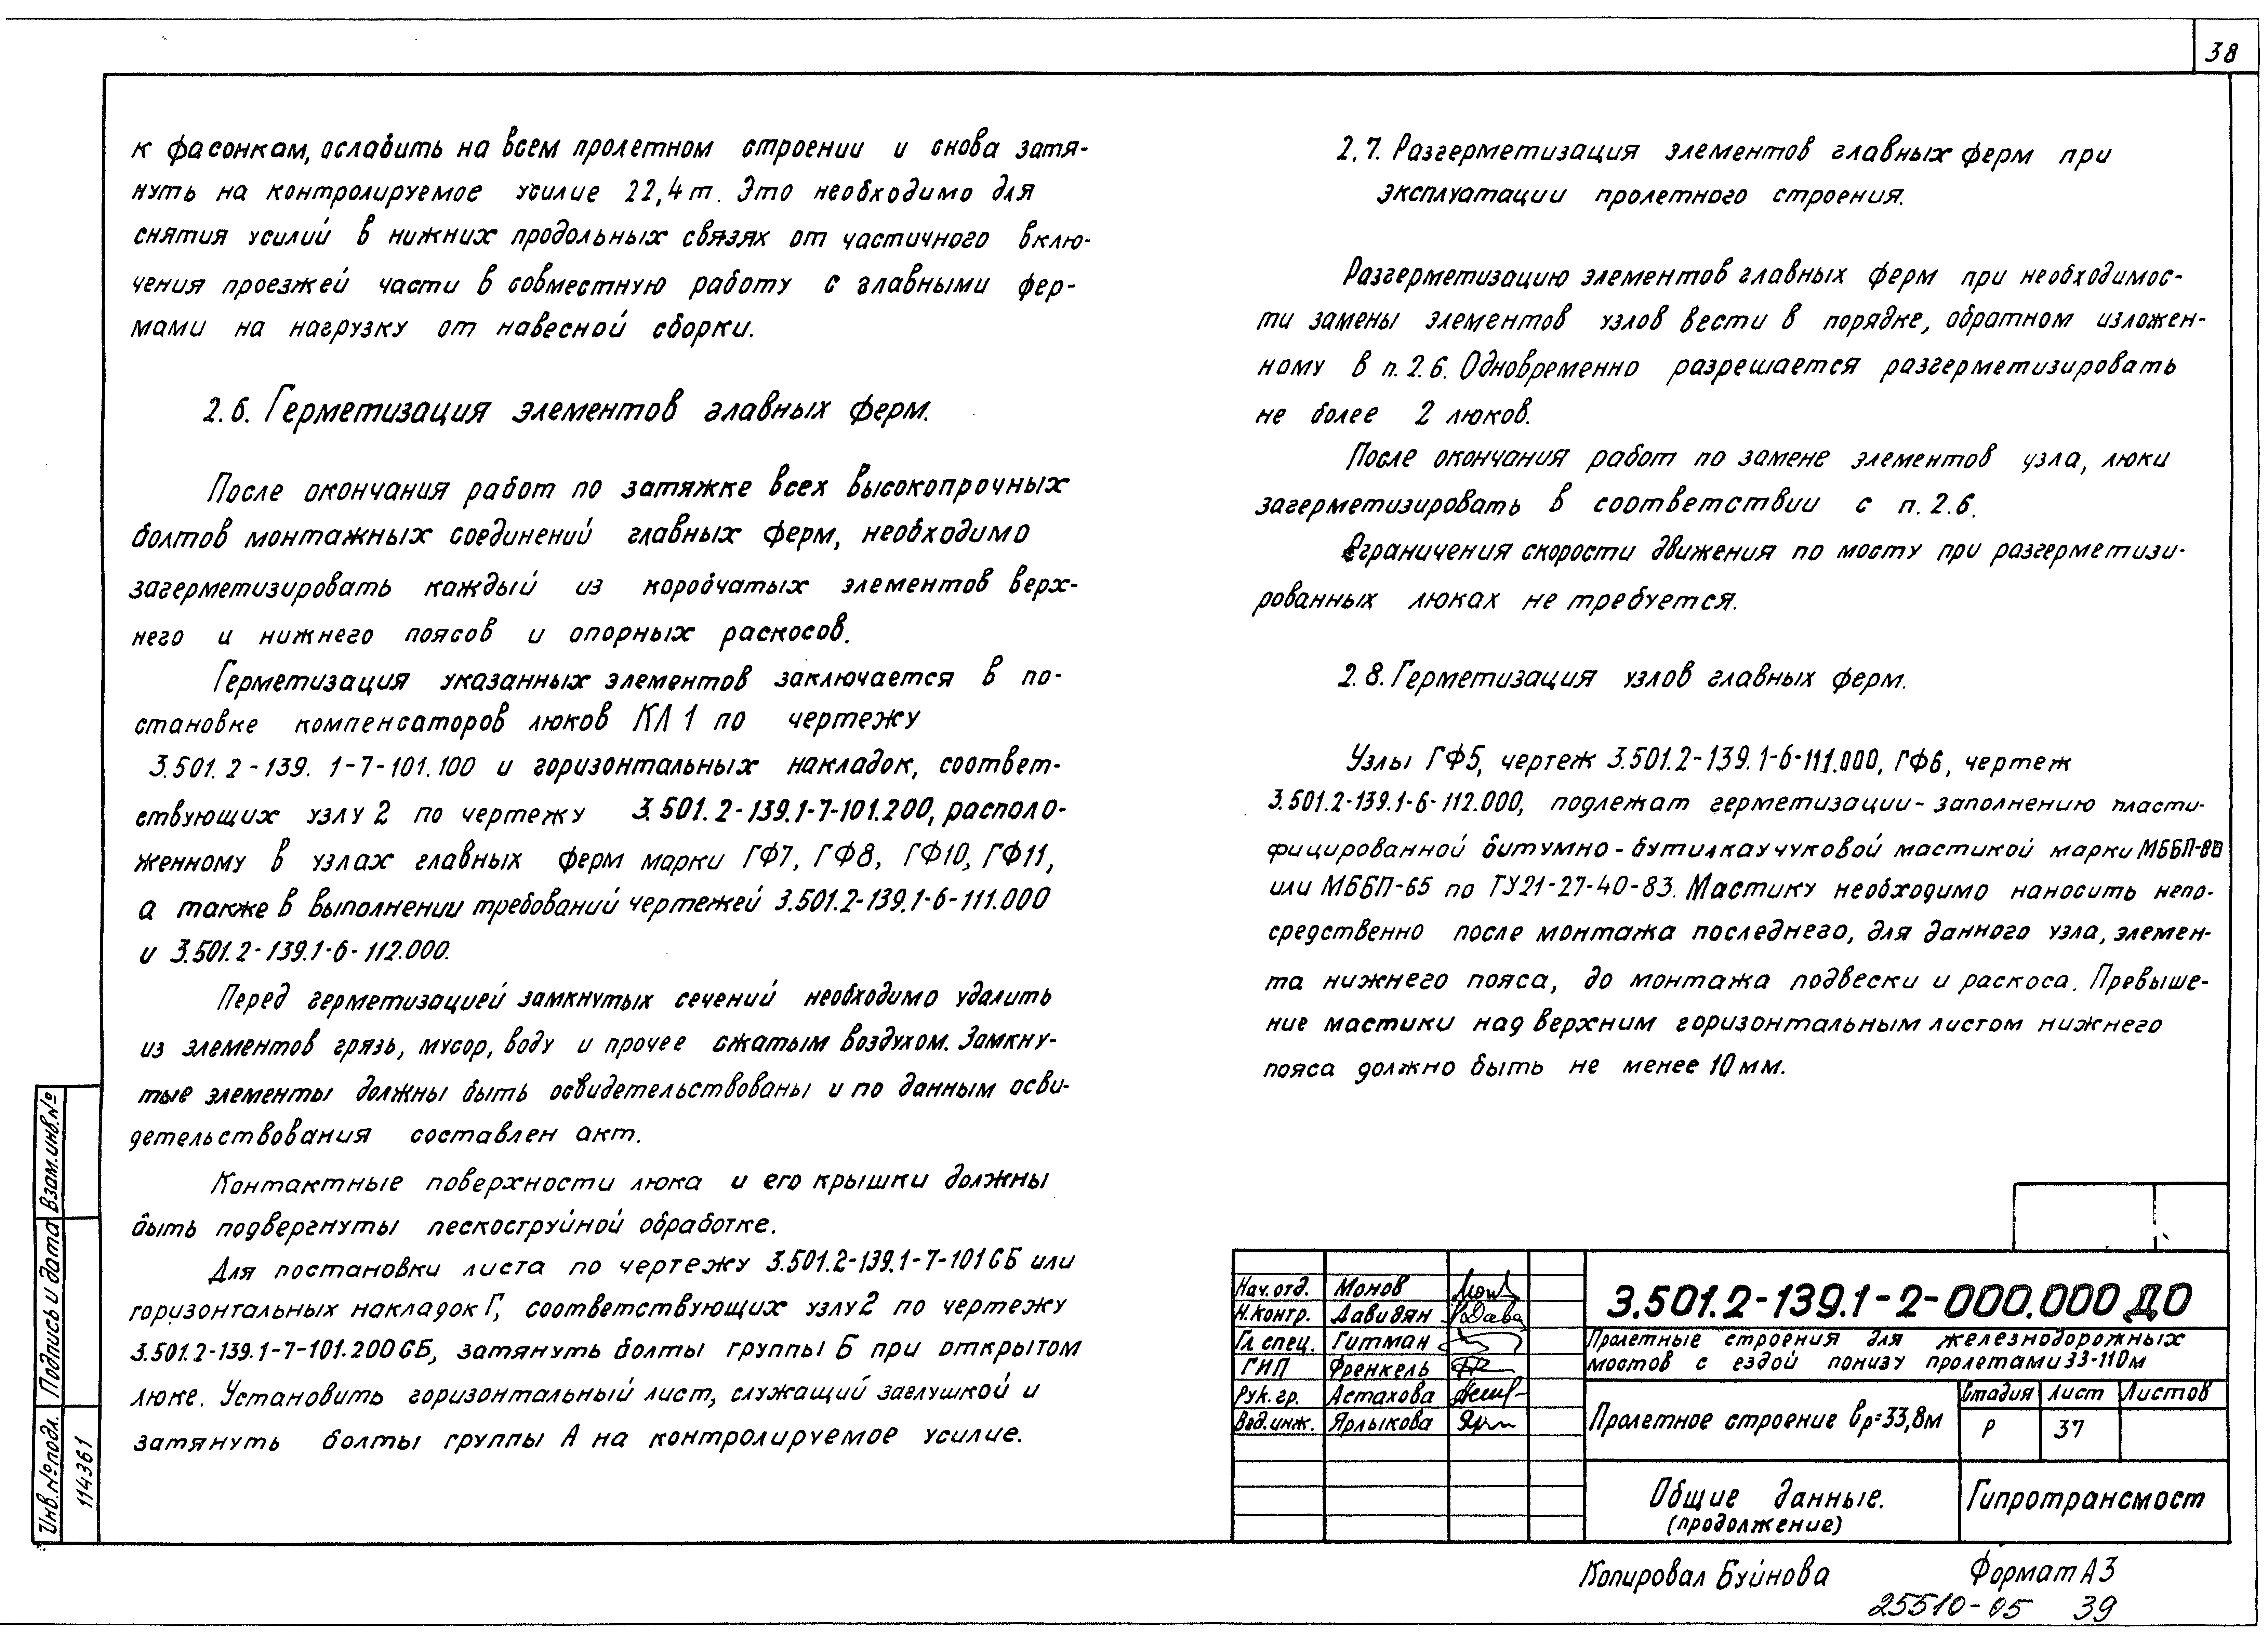 38
к фасонкам, ослабить на всем пролетном строении и снова затя-
нуть на контролируемое усилие 22,4т. Это необходимо для
снятия усилий в нижних продольных связях от частичного вклю-
чения проезжей части в совместную работу с главными фер-
мами на нагрузку от навесной сборки.
2.6. Герметизация элементов главных ферм.
После окончания работ по затяжке всех высокопрочных
болтов монтажных соединений главных ферм, необходимо
загерметизировать каждый из коробчатых элементов верх-
него и нижнего поясов и опорных раскосов.
Герметизация указанных элементов заключается в по-
становке компенсаторов люков КЛ1 по чертежу
3.501.2-139.1-7-101.100 и горизонтальных накладок, соответ-
ствующих узлу 2 по чертежу 3.501.2-139.1-7-101.200, располо-
женному в узлах главных ферм марки ГФ7, ГФ8, ГФ10, ГФ11,
а также в выполнении требований чертежей 3.501.2-139.1-6-111.000
и 3.501.2-139.1-6-112.000.
Перед герметизацией замкнутых сечений необходимо удалить
из элементов грязь, мусор, воду и прочее сжатым воздухом. Замкну-
тые элементы должны быть освидетельствованы и по данным осви-
детельствования составлен акт.
Контактные поверхности люка и его крышки должны
быть подвергнуты пескоструйной обработке.
Для постановки листа по чертежу 3.501.2-139.1-7-101СБ или
горизонтальных накладок Г, соответствующих узлу 2 по чертежу
3.501.2-139.1-7-101.200СБ, затянуть болты группы Б при открытом
люке. Установить горизонтальный лист, служащий заглушкой и
затянуть болты группы А на контролируемое усилие.
2.7. Разгерметизация элементов главных ферм при
эксплуатации пролетного строения.
Разгерметизацию элементов главных ферм при необходимос-
ти замены элементов узлов вести в порядке, обратном изложен-
ному в п. 2.6. Одновременно разрешается разгерметизировать
не более 2 люков.
После окончания работ по замене элементов узла, люки
загерметизировать в соответствии с п. 2.6.
Ограничения скорости движения по мосту при разгерметизи-
рованных люках не требуется.
2.8. Герметизация узлов главных ферм.
Узлы ГФ5, чертеж 3.501.2-139.1-6-111.000, ГФ6, чертеж
3.501.2-139.1-6-112.000, подлежат герметизации-заполнению пласти-
фицированной битумно-бутилкаучуковой мастикой марки МББП-80
или МББП-65 по ТУ21-27-40-83. Мастику необходимо наносить непо-
средственно после монтажа последнего, для данного узла, элемен-
та нижнего пояса, до монтажа подвески и раскоса. Превыше-
ние мастики над верхним горизонтальным листом нижнего
пояса должно быть не менее 10 мм.
Взам.инв.№
Подпись и дата
Инв.№ подл.
114361
Нач.отд. Монов
Н.контр. Давидян
Гл спец. Гитман
ГИП Френкель
Рук.гр. Астахова
Вед.инж. Ярлыкова
3.501.2-139.1-2-000.000 ДО
Пролетные строения для железнодорожных
мостов с ездой понизу пролетами 33-110м
Пролетное строение ℓр=33,8м
Стадия Лист Листов
Р 37
Общие данные.
(продолжение)
Гипротрансмост
Копировал Буйнова Формат А3
25510-05 39